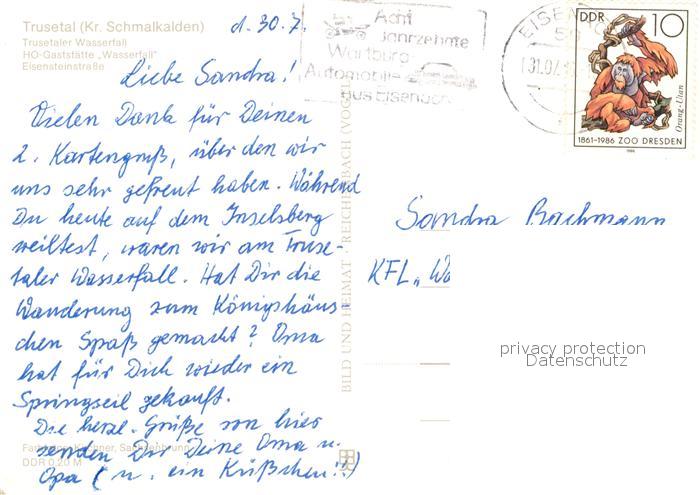 Trusetal (Kr. Schmalkalden)
Trusetaler Wasserfall
HO-Gaststätte „Wasserfall"
Eisensteinstraße
d. 30.7.
Acht
Jahrzehnte
Wartburg
Automobile
aus Eisenach
31.07.
DDR 10
Orang-Utan
1861-1986 ZOO DRESDEN
1986
Liebe Sandra!
Vielen Dank für Deinen
2. Kartengruß, über den wir
uns sehr gefreut haben. Während
Du heute auf dem Inselsberg
weiltest, waren wir am Truse-
taler Wasserfall. Hat Dir die
Wanderung zum Königshäus-
chen Spaß gemacht? Oma
hat für Dich wieder ein
Springseil gekauft.
Die herzl. Grüße von hier
senden Dir Deine Oma u.
Opa (u. ein Küßchen!!)
DDR 0,20 M
BILD UND HEIMAT · REICHENBACH (VOGTL
Sandra Bachmann
KFL „Wa
privacy protection
Datenschutz